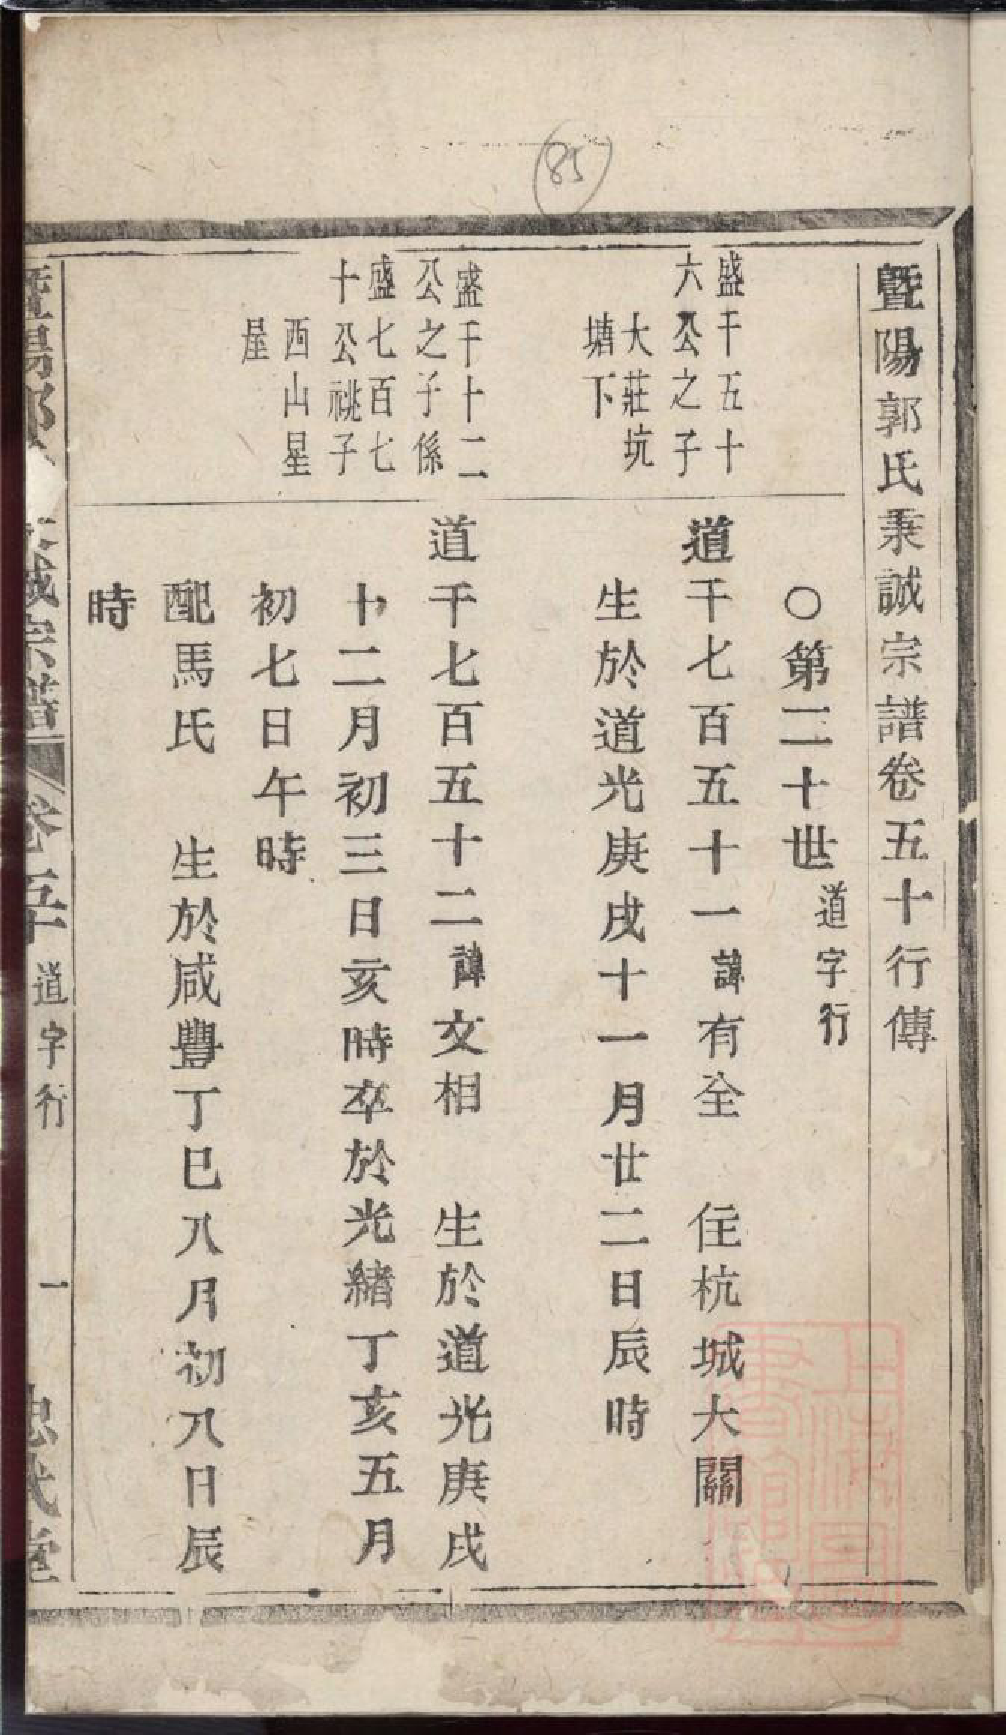 85
暨陽郭氏秉誠宗譜卷五十行傳
○第二十世道字行
盛千五十
六公之子
大莊坑
塘下
道千七百五十一諱有全 住杭城大關
生於道光庚戌十一月廿二日辰時
盛千十二
公之子係
盛七百七
十公祧子
西山星
屋
道千七百五十二諱文相 生於道光庚戌
十二月初三日亥時卒於光緒丁亥五月
初七日午時
配馬氏 生於咸豐丁巳八月初八日辰
時
暨陽郭 誠宗譜 卷五十 道字行 一